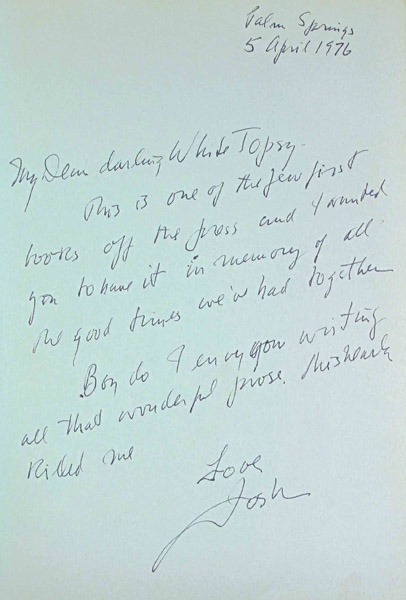 Palm Springs
5 April 1976
My Dear darling White Topsy.
This is one of the few first
books off the press and I wanted
you to have it in memory of all
the good times we've had together
Boy do I envy you writing
all that wonderful prose. This nearly
killed me
Love
Josh